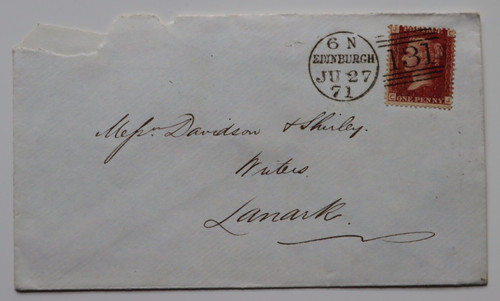 6 N
EDINBURGH
JU 27
71
131
ONE PENNY
Messrs Davidson & Shirley.
Writers
Lanark.